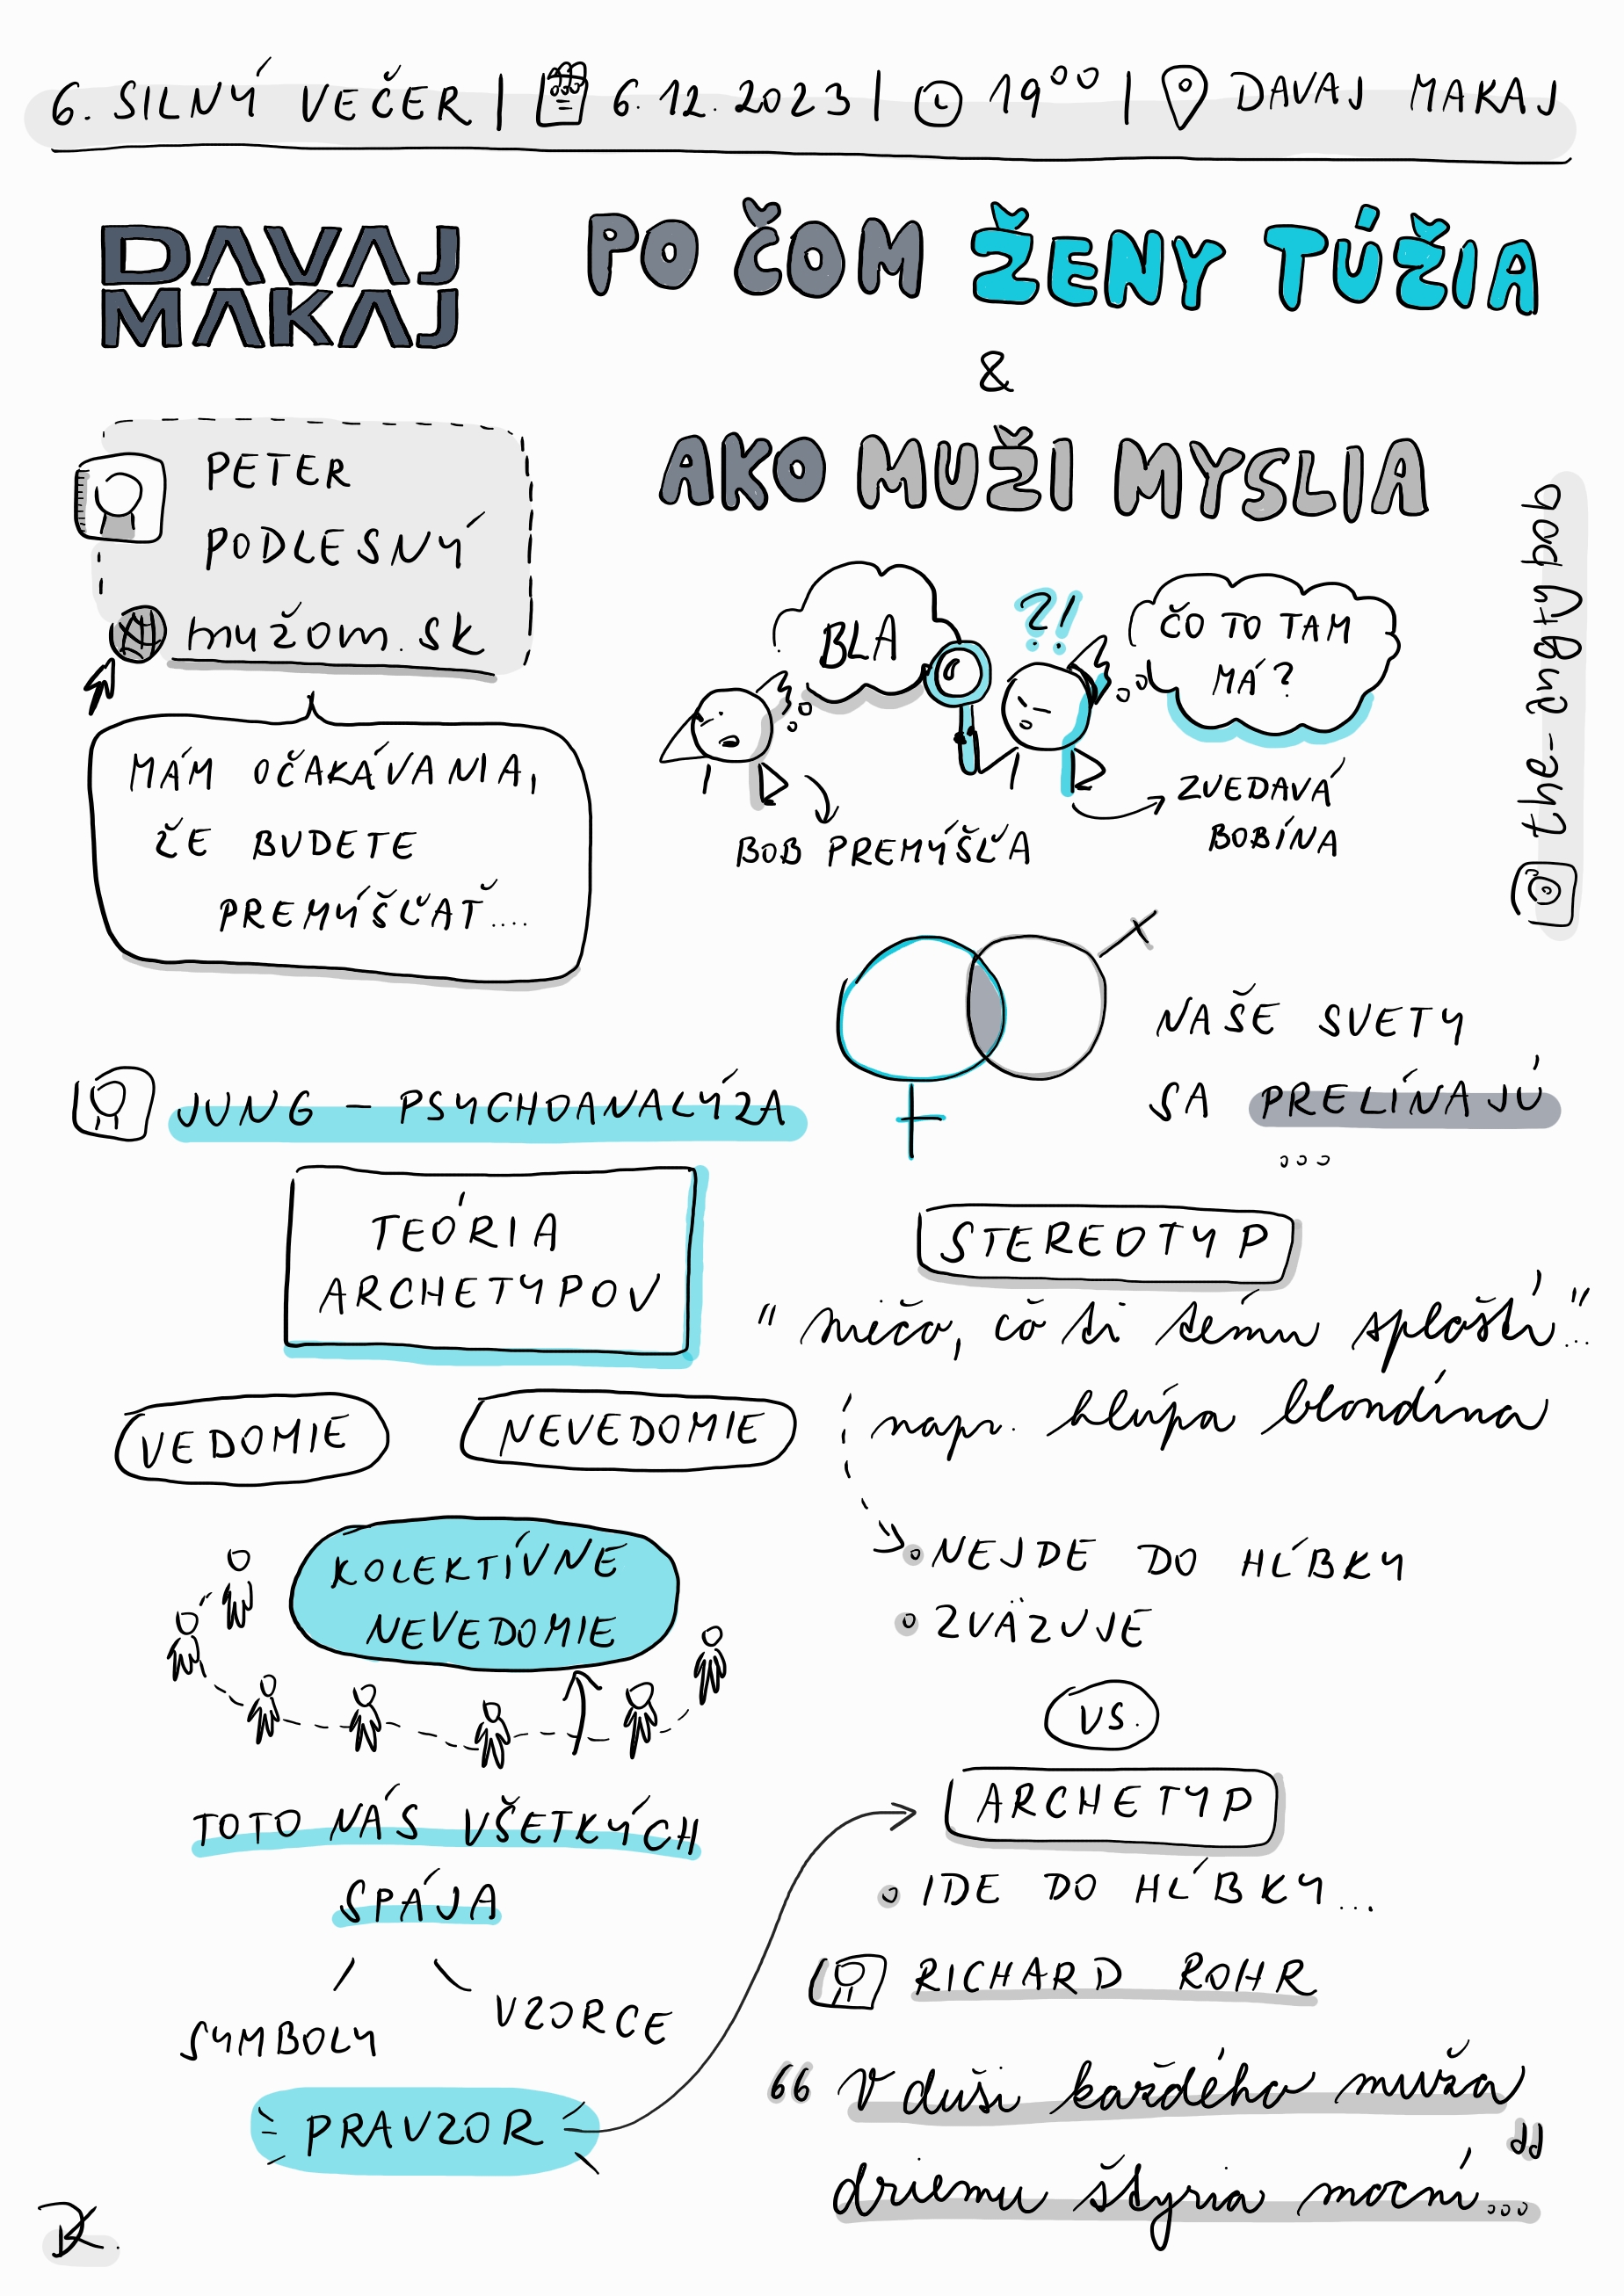 6. SILNÝ VEČER | 6.12.2023 | 19⁰⁰ | DAVAJ MAKAJ
DAVAJ
MAKAJ
PO ČOM ŽENY TÚŽIA
&
AKO MUŽI MYSLIA
PETER
PODLESNÝ
mužom.sk
MÁM OČAKÁVANIA,
ŽE BUDETE
PREMÝŠĽAŤ....
BLA
?!
ČO TO TAM
MÁ?
BOB PREMÝŠĽA
ZVEDAVÁ
BOBÍNA
NAŠE SVETY
SA PRELÍNAJÚ
...
JUNG – PSYCHOANALÝZA
TEÓRIA
ARCHETYPOV
VEDOMIE
NEVEDOMIE
KOLEKTÍVNE
NEVEDOMIE
TOTO NÁS VŠETKÝCH
SPÁJA
SYMBOLY
VZORCE
PRAVZOR
STEREOTYP
"niečo, čo ti tému sploští"..
napr. hlúpa blondína
NEJDE DO HĹBKY
ZVÄZUJE
VS.
ARCHETYP
IDE DO HĹBKY...
RICHARD ROHR
"V duši každého muža
driemu štyria mocní..."
DK.